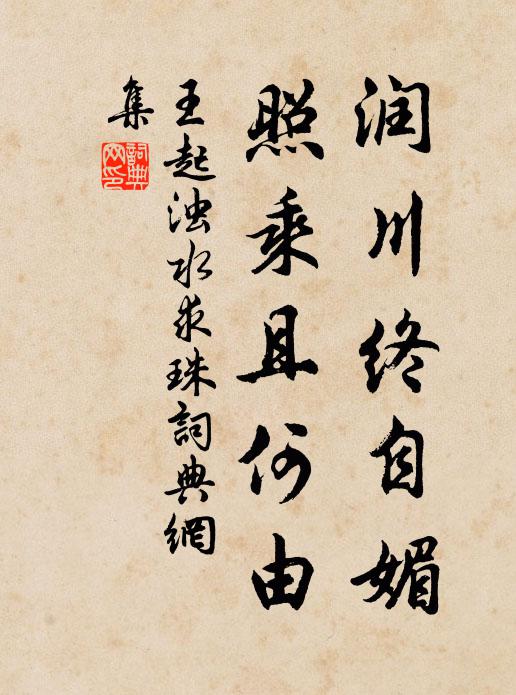 润川终自媚
照乘且何由
王起浊水求珠詞典網
集
詞典
网印